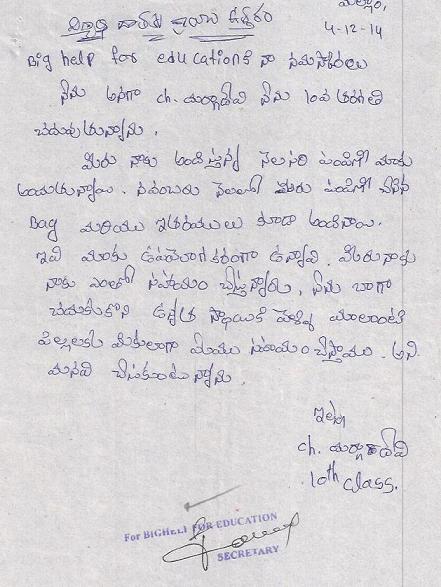 విద్యార్థి దాతకు వ్రాయు ఉత్తరం
4-12-14
Big help for educationకి నా నమస్కారంలు
నేను అనగా ch. దుర్గాదేవి నేను 10వ తరగతి
చదువుతున్నాను.
మీరు నాకు అందిస్తున్న నెలసరి పంపిణీ మాకు
అందుతున్నాయి. నవంబరు నెలలో మీరు పంపిణీ చేసిన
Bag మరియు ఇతరములు కూడా అందినాయి.
ఇవి మాకు ఉపయోగకరంగా ఉన్నావి. మీరు నాకు
నాకు ఎంతో సహాయం చేస్తున్నారు, నేను బాగా
చదుకుకొని ఉన్నత స్థాయికి వెళ్ళి మాలాంటి
పిల్లలకు మీకులాగా మేము సహాయం చేస్తాము. అని
మనవి చేసుకుంటున్నాను.
ఇట్లు
ch. దుర్గాదేవి
10th class.
For BIGHELP FOR EDUCATION
SECRETARY